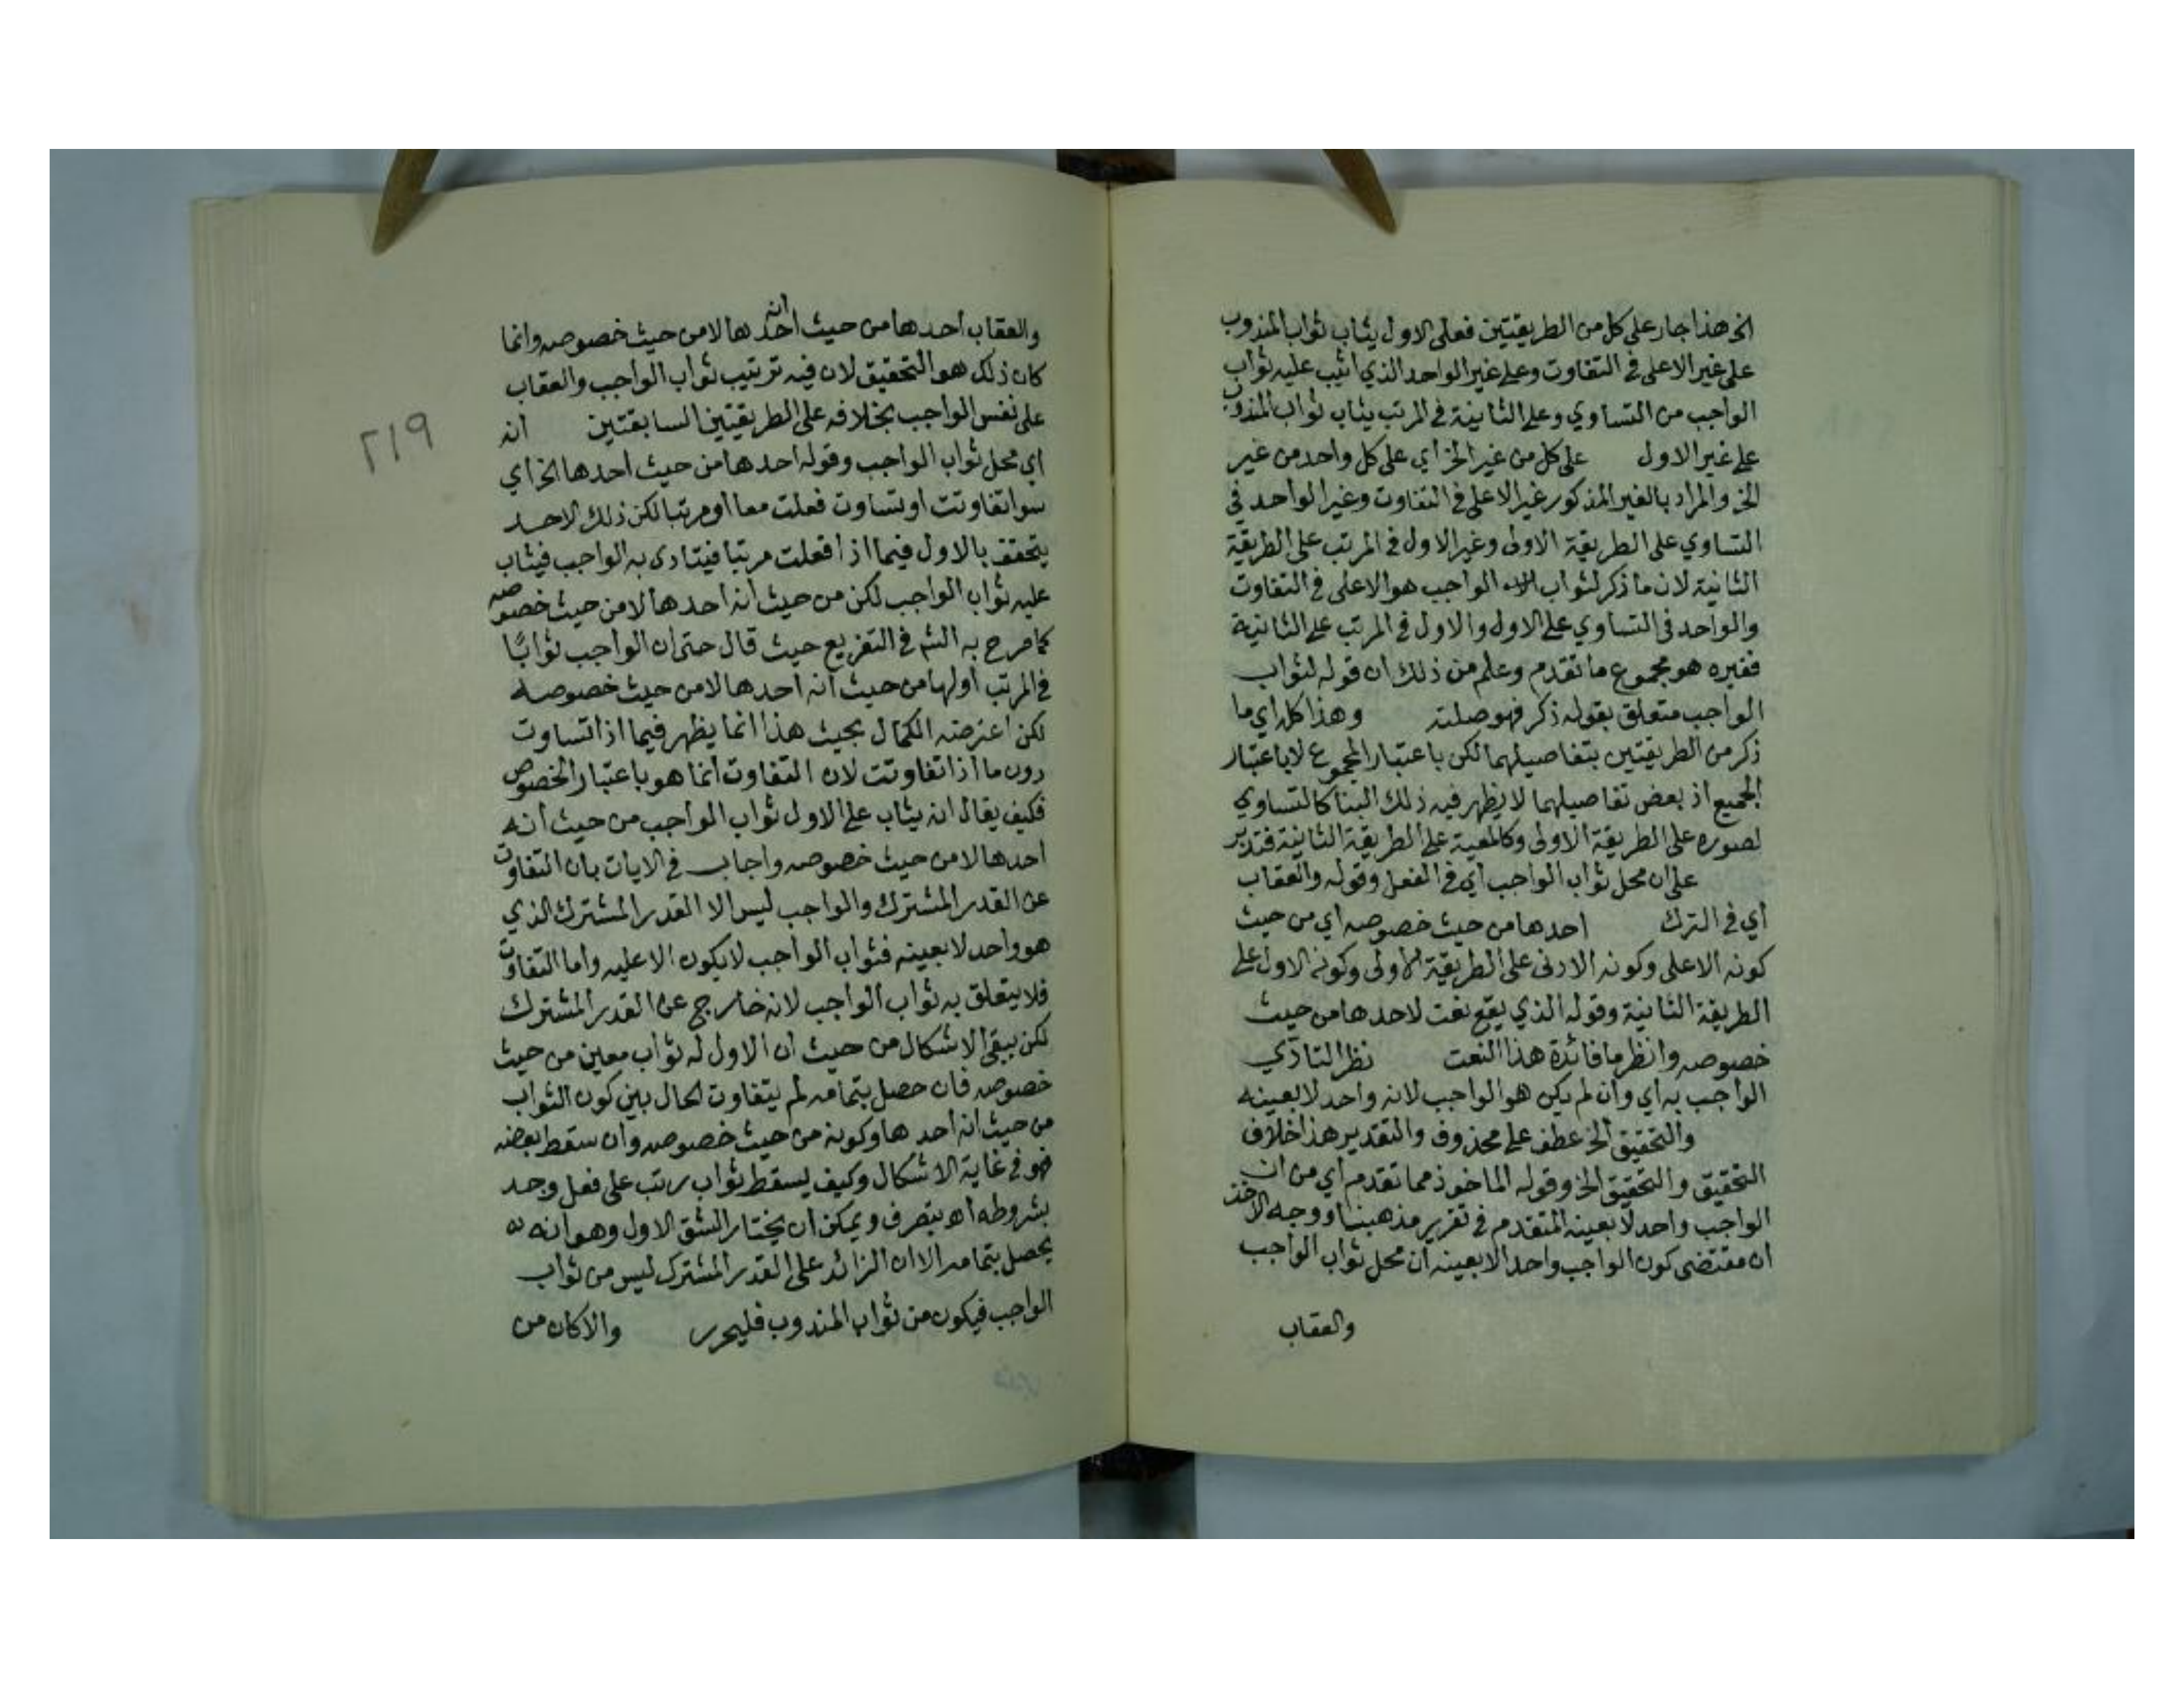 الخ هذا جار على كل من الطريقتين فعلى الاول يثاب ثواب المندوب
على غير الاعلى في التفاوت وعلى غير الواحد الذي اثيب عليه ثواب
الواجب من التساوي وعلى الثانية في المرتب يثاب ثواب المندوب
على غير الاول على كل من غير الخ أي على كل واحد من غير
الخ والمراد بالغير المذكور غير الاعلى في التفاوت وغير الواحد في
التساوي على الطريقة الاولى وغير الاول في المرتب على الطريقة
الثانية لان ما ذكر لثواب الواجب هو الاعلى في التفاوت
والواحد في التساوي على الاول والاول في المرتب على الثانية
فغيره هو مجموع ما تقدم وعلم من ذلك ان قوله لثواب
الواجب متعلق بقوله ذكر فهو صلته وهذا كله اي ما
ذكر من الطريقتين بتفاصيلهما لكن باعتبار المجموع لا باعتبار
الجميع اذ بعض تفاصيلهما لا يظهر فيه ذلك البنا كالتساوي
لصوره على الطريقة الاولى وكالمعية على الطريقة الثانية فتدبر
على ان محل ثواب الواجب أي في الفعل وقوله والعقاب
أي في الترك احدها من حيث خصوصه أي من حيث
كونه الاعلى وكونه الادنى على الطريقة الاولى وكونه الاول على
الطريقة الثانية وقوله الذي يقع نعت لاحدها من حيث
خصوصه وانظر ما فائدة هذا النعت نظر التادّي
الواجب به أي وان لم يكن هو الواجب لانه واحد لا بعينه
والتحقيق الخ عطف على محذوف والتقدير هذا خلاف
التحقيق والتحقيق الخ وقوله الماخوذ مما تقدم أي من ان
الواجب واحد لا بعينه المتقدم في تقرير مذهبنا ووجه الاخذ
ان مقتضى كون الواجب واحدا لا بعينه ان محل ثواب الواجب
والعقاب
والعقاب احدها من حيث انه احدها لا من حيث خصوصه وانما
كان ذلك هو التحقيق لان فيه ترتيب ثواب الواجب والعقاب
على نفس الواجب بخلافه على الطريقتين السابقتين انه
اي محل ثواب الواجب وقوله احدها من حيث احدها الخ أي
سوا تفاوتت او تساوت فعلت معا او مرتبا لكن ذلك الاحد
يتحقق بالاول فيما اذا فعلت مرتبا فيتادى به الواجب فيثاب
عليه ثواب الواجب لكن من حيث انه احدها لا من حيث خصوصه
كما صرح به الشم في التفريع حيث قال حتى ان الواجب ثوابًا
في المرتب أولها من حيث انه احدها لا من حيث خصوصه
لكن اعترضه الكمال بحيث هذا انما يظهر فيما اذا تساوت
دون ما اذا تفاوتت لان التفاوت انما هو باعتبار الخصوص
فكيف يقال انه يثاب على الاول ثواب الواجب من حيث أنه
احدها لا من حيث خصوصه واجاب في الايات بان التفاوت
عن القدر المشترك والواجب ليس الا القدر المشترك الذي
هو واحد لا بعينه فثواب الواجب لا يكون الا عليه واما التفاوت
فلا يتعلق به ثواب الواجب لانه خارج عن القدر المشترك
لكن يبقى الاشكال من حيث ان الاول له ثواب معين من حيث
خصوصه فان حصل بتمامه لم يتفاوت الحال بين كون الثواب
من حيث انه احدها وكونه من حيث خصوصه وان سقط بعضه
فهو في غاية الاشكال وكيف يسقط ثواب رتب على فعل وجد
بشروطه اه بتصرف ويمكن ان يختار الشق الاول وهو انه
يحصل بتمامه الا ان الزائد على القدر المشترك ليس من ثواب
الواجب فيكون من ثواب المندوب فليحرر والا كان من
٢١٩